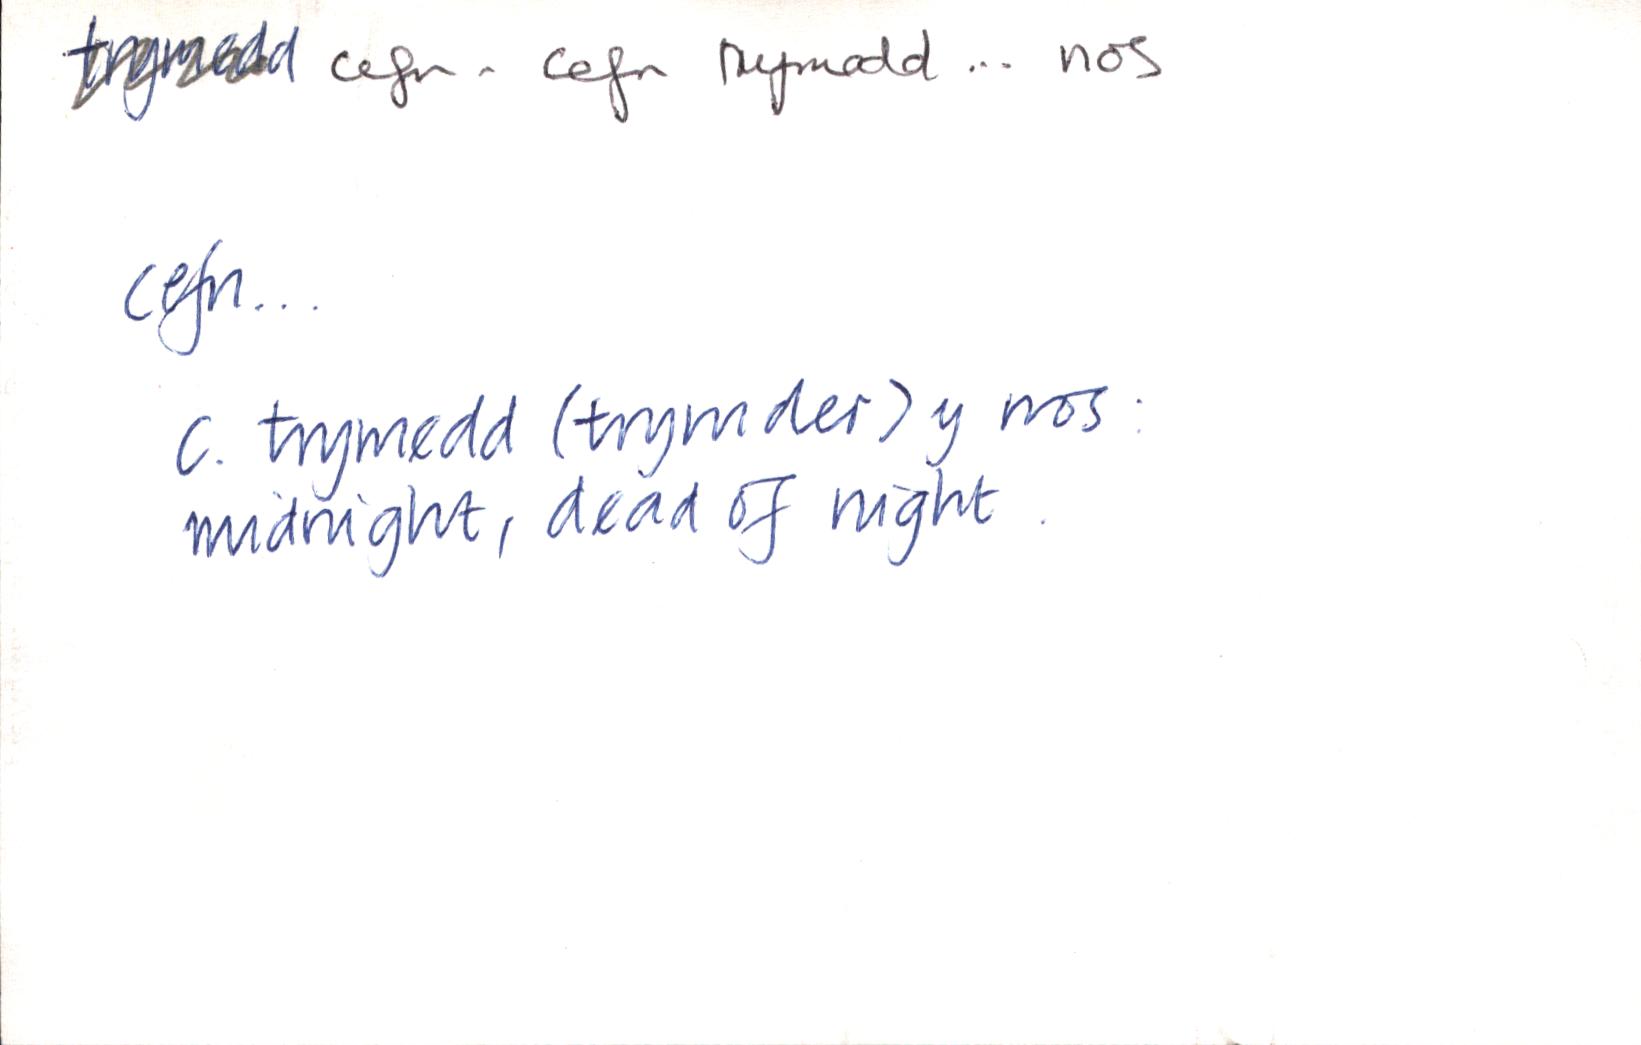 trymedd cefn - cefn trymedd ... nos
cefn...
c. trymedd (trymder) y nos:
midnight, dead of night.